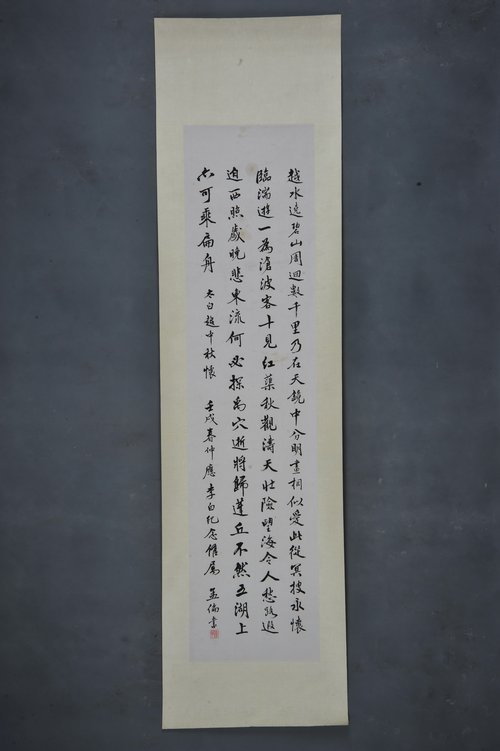 越水遶碧山周迴數千里乃是天鏡中分明畫相似愛此從冥搜永懷
臨湍遊一為滄波客十見紅蕖秋觀濤天壯險望海令人愁路遐
迫西照歲晚悲東流何必探禹穴逝將歸蓬丘不然五湖上
亦可乘扁舟 太白越中秋懷 壬戌春仲應李白紀念館屬 孟倫書